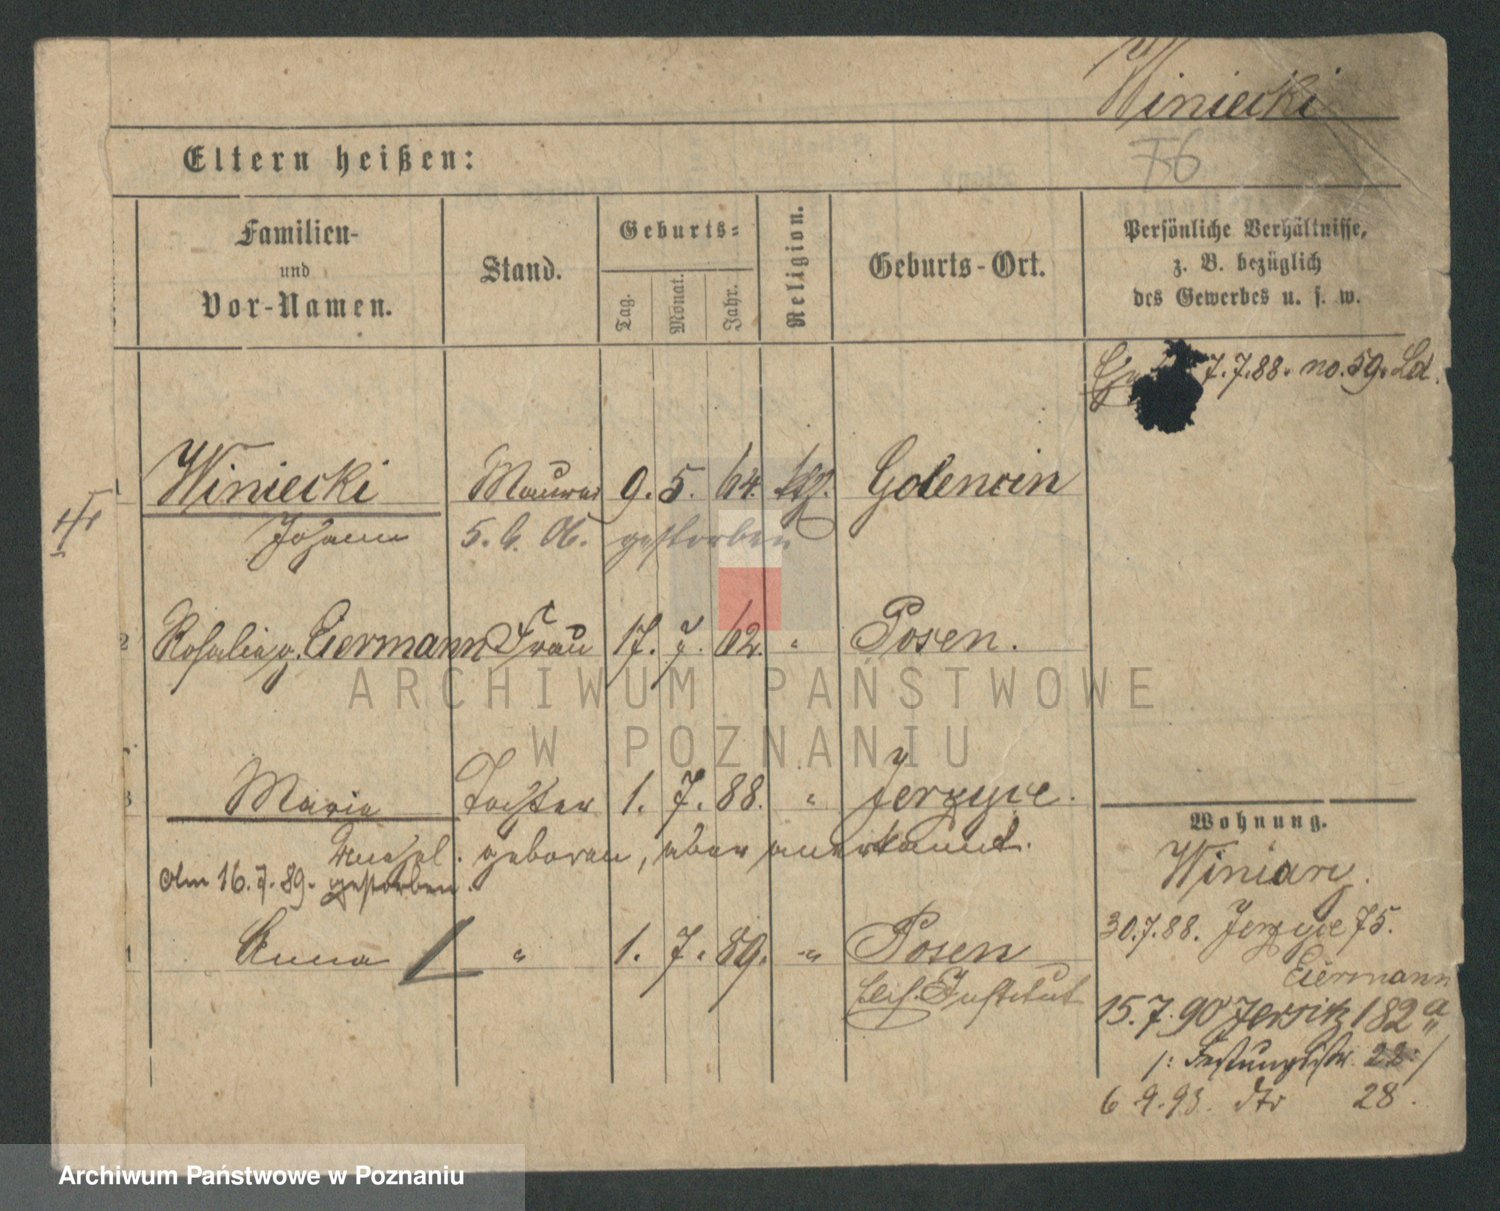 Winiecki
76
Eltern heißen:
Familien-
und
Vor-Namen.
Stand.
Geburts-
Tag.
Monat.
Jahr.
Religion.
Geburts-Ort.
Persönliche Verhältnisse,
z. B. bezüglich
des Gewerbes u. s. w.
7.7.88. no. 59. Ld.
1 Winiecki Maurer 9. 5. 64. ktz. Golencin
Johann 5. 6. 06. gestorben
2 Rosalia g. Eiermann Frau 17. 7. 62. " Posen.
3 Maria Tochter 1. 7. 88. " Jerzyce.
unehel. geboren, aber anerkannt.
Am 16. 7. 89. gestorben.
4 Anna " 1. 7. 89. " Posen
Institut
Wohnung.
Winiary.
30.7.88. Jerzyce 75.
Eiermann
15.7.90 Jersitz 182a
/: Festungsstr. 22 :/
6 9.93. dto 28.
ARCHIWUM PAŃSTWOWE
W POZNANIU
Archiwum Państwowe w Poznaniu